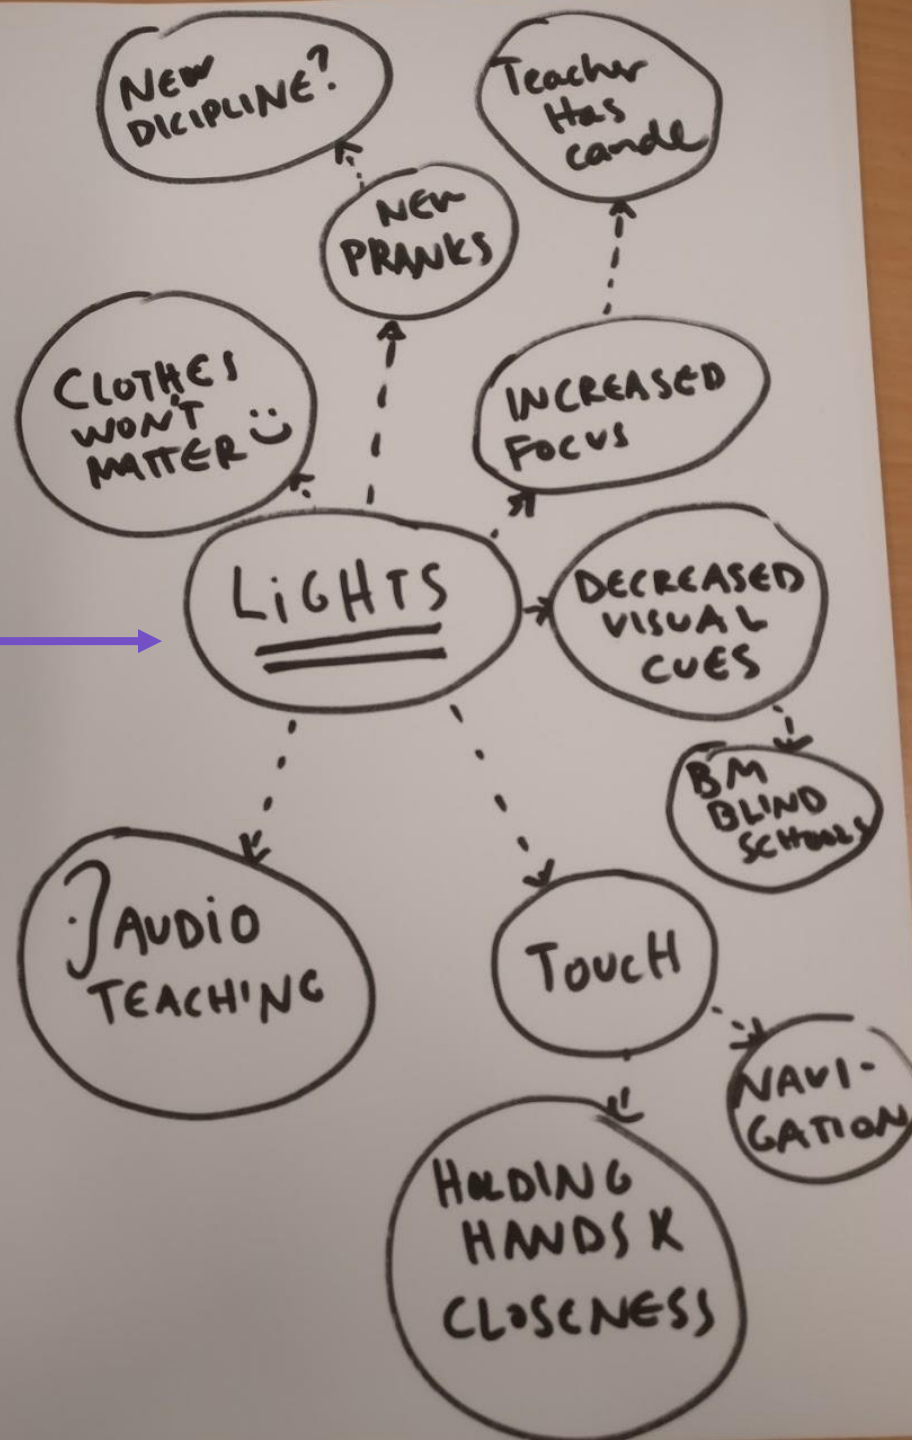 NEW
DICIPLINE?
Teacher
Has
candle
NEW
PRANKS
CLOTHES
WON'T
MATTER :)
INCREASED
FOCUS
LiGHTS
DECREASED
VISUAL
CUES
BM
BLIND
SCHOOLS
? AUDiO
TEACHING
TOUCH
NAVI-
GATION
HOLDING
HANDS &
CLOSENESS